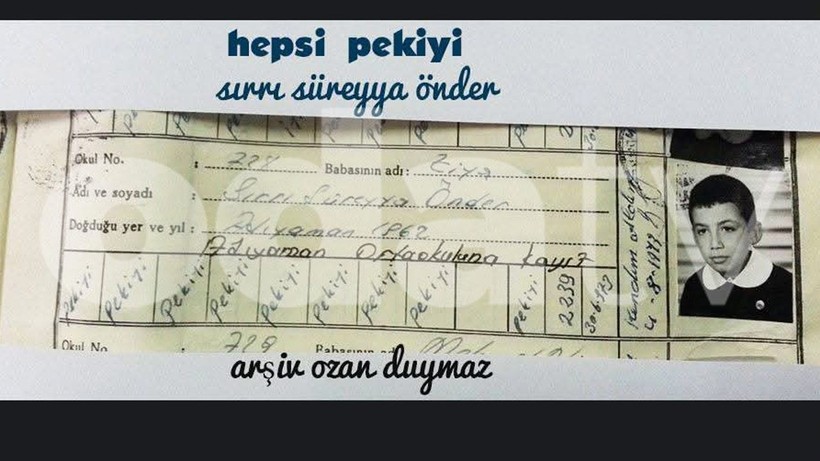 hepsi pekiyi
sırrı süreyya önder
Okul No. : 728 Babasının adı : Ziya
Adı ve soyadı : Sırrı Süreyya Önder
Doğduğu yer ve yıl : Adıyaman 1962
Adıyaman Ortaokuluna kayıt
pekiyi pekiyi pekiyi pekiyi pekiyi pekiyi pekiyi pekiyi pekiyi 2239
Okul No. 729 Babasının adı
arşiv ozan duymaz
odatv